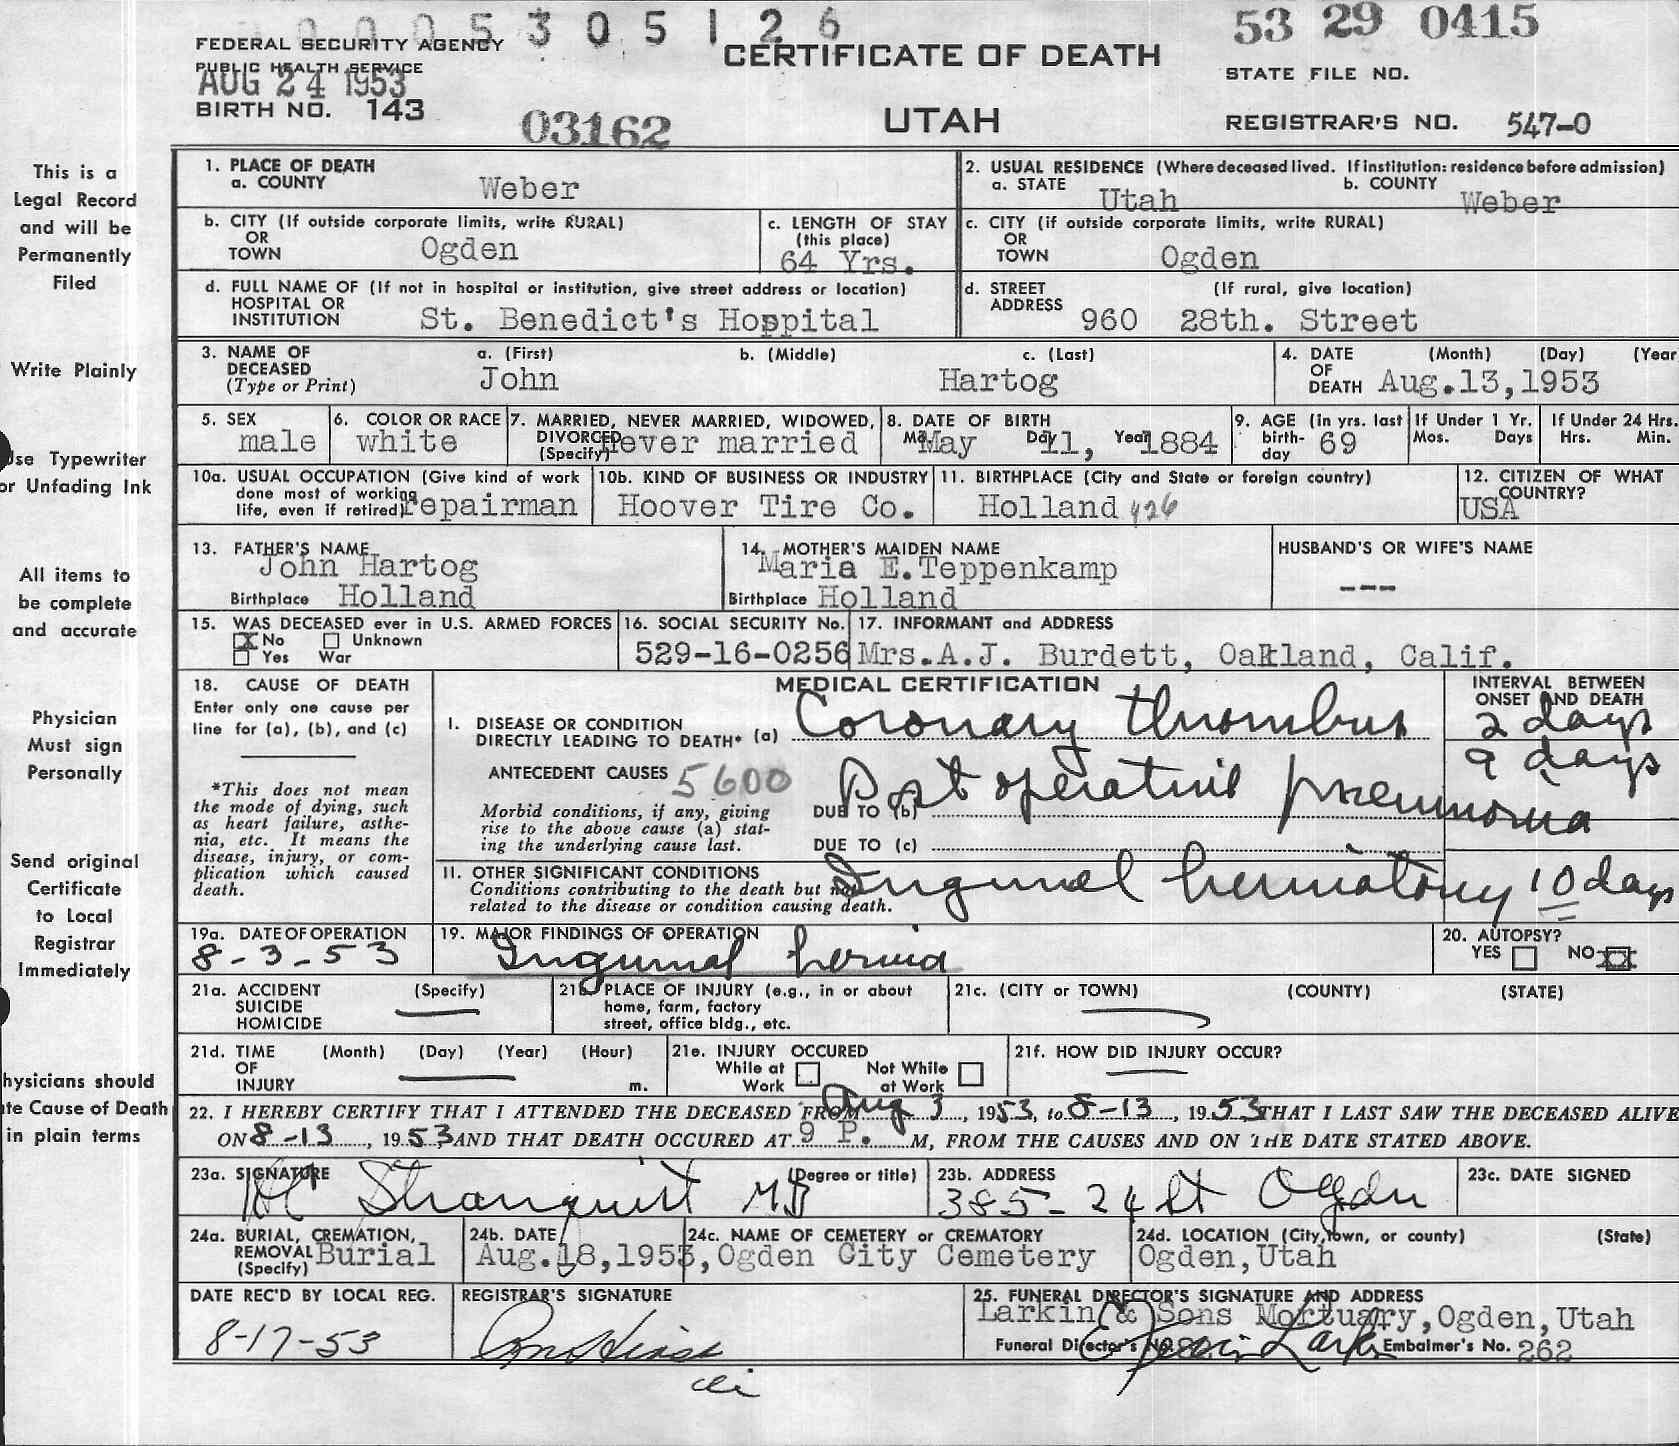 0 0 0 5 3 0 5 1 2 6
53 29 0415
FEDERAL SECURITY AGENCY
PUBLIC HEALTH SERVICE
AUG 24 1953
BIRTH NO. 143
03162
CERTIFICATE OF DEATH
UTAH
STATE FILE NO.
REGISTRAR'S NO. 547-0
This is a
Legal Record
and will be
Permanently
Filed
Write Plainly
Use Typewriter
or Unfading Ink
All items to
be complete
and accurate
Physician
Must sign
Personally
Send original
Certificate
to Local
Registrar
Immediately
hysicians should
te Cause of Death
in plain terms
1. PLACE OF DEATH
a. COUNTY Weber
2. USUAL RESIDENCE (Where deceased lived. If institution: residence before admission)
a. STATE Utah b. COUNTY Weber
b. CITY (If outside corporate limits, write RURAL)
OR
TOWN Ogden
c. LENGTH OF STAY
(this place)
64 Yrs.
c. CITY (if outside corporate limits, write RURAL)
OR
TOWN Ogden
d. FULL NAME OF (If not in hospital or institution, give street address or location)
HOSPITAL OR
INSTITUTION St. Benedict's Hospital
d. STREET (If rural, give location)
ADDRESS 960 28th. Street
3. NAME OF a. (First) b. (Middle) c. (Last)
DECEASED
(Type or Print) John Hartog
4. DATE (Month) (Day) (Year
OF
DEATH Aug.13,1953
5. SEX
male
6. COLOR OR RACE
white
7. MARRIED, NEVER MARRIED, WIDOWED,
DIVORCED
(Specify) never married
8. DATE OF BIRTH
Mo. May Day 11, Year 1884
9. AGE (in yrs. last
birth-
day 69
If Under 1 Yr.
Mos. Days
If Under 24 Hrs.
Hrs. Min.
10a. USUAL OCCUPATION (Give kind of work
done most of working
life, even if retired) repairman
10b. KIND OF BUSINESS OR INDUSTRY
Hoover Tire Co.
11. BIRTHPLACE (City and State or foreign country)
Holland 426
12. CITIZEN OF WHAT
COUNTRY?
USA
13. FATHER'S NAME
John Hartog
Birthplace Holland
14. MOTHER'S MAIDEN NAME
Maria E.Teppenkamp
Birthplace Holland
HUSBAND'S OR WIFE'S NAME
---
15. WAS DECEASED ever in U.S. ARMED FORCES
X No Unknown
Yes War
16. SOCIAL SECURITY No.
529-16-0256
17. INFORMANT and ADDRESS
Mrs.A.J. Burdett, Oakland, Calif.
18. CAUSE OF DEATH
Enter only one cause per
line for (a), (b), and (c)
*This does not mean
the mode of dying, such
as heart failure, asthe-
nia, etc. It means the
disease, injury, or com-
plication which caused
death.
MEDICAL CERTIFICATION
INTERVAL BETWEEN
ONSET AND DEATH
I. DISEASE OR CONDITION
DIRECTLY LEADING TO DEATH* (a) Coronary thrombus 2 days
ANTECEDENT CAUSES 5600
Morbid conditions, if any, giving
rise to the above cause (a) stat-
ing the underlying cause last.
DUE TO (b) Post operative pneumonia 9 days
DUE TO (c)
11. OTHER SIGNIFICANT CONDITIONS
Conditions contributing to the death but not
related to the disease or condition causing death.
Inguinal herniotomy 10 days
19a. DATE OF OPERATION
8-3-53
19. MAJOR FINDINGS OF OPERATION
Inguinal hernia
20. AUTOPSY?
YES NO X
21a. ACCIDENT (Specify)
SUICIDE
HOMICIDE
21b. PLACE OF INJURY (e.g., in or about
home, farm, factory
street, office bldg., etc.
21c. (CITY or TOWN) (COUNTY) (STATE)
21d. TIME (Month) (Day) (Year) (Hour)
OF
INJURY m.
21e. INJURY OCCURED
While at Not While
Work at Work
21f. HOW DID INJURY OCCUR?
22. I HEREBY CERTIFY THAT I ATTENDED THE DECEASED FROM Aug 3, 1953, to 8-13, 1953 THAT I LAST SAW THE DECEASED ALIVE
ON 8-13, 1953 AND THAT DEATH OCCURED AT 9 P. M, FROM THE CAUSES AND ON THE DATE STATED ABOVE.
23a. SIGNATURE (Degree or title)
Stranquist MD
23b. ADDRESS
385-24 St Ogden
23c. DATE SIGNED
24a. BURIAL, CREMATION,
REMOVAL
(Specify) Burial
24b. DATE
Aug.18,1953,
24c. NAME OF CEMETERY or CREMATORY
Ogden City Cemetery
24d. LOCATION (City, town, or county) (State)
Ogden,Utah
DATE REC'D BY LOCAL REG.
8-17-53
REGISTRAR'S SIGNATURE
25. FUNERAL DIRECTOR'S SIGNATURE AND ADDRESS
Larkin & Sons Mortuary,Ogden,Utah
Funeral Director's No. Larkin Embalmer's No. 262